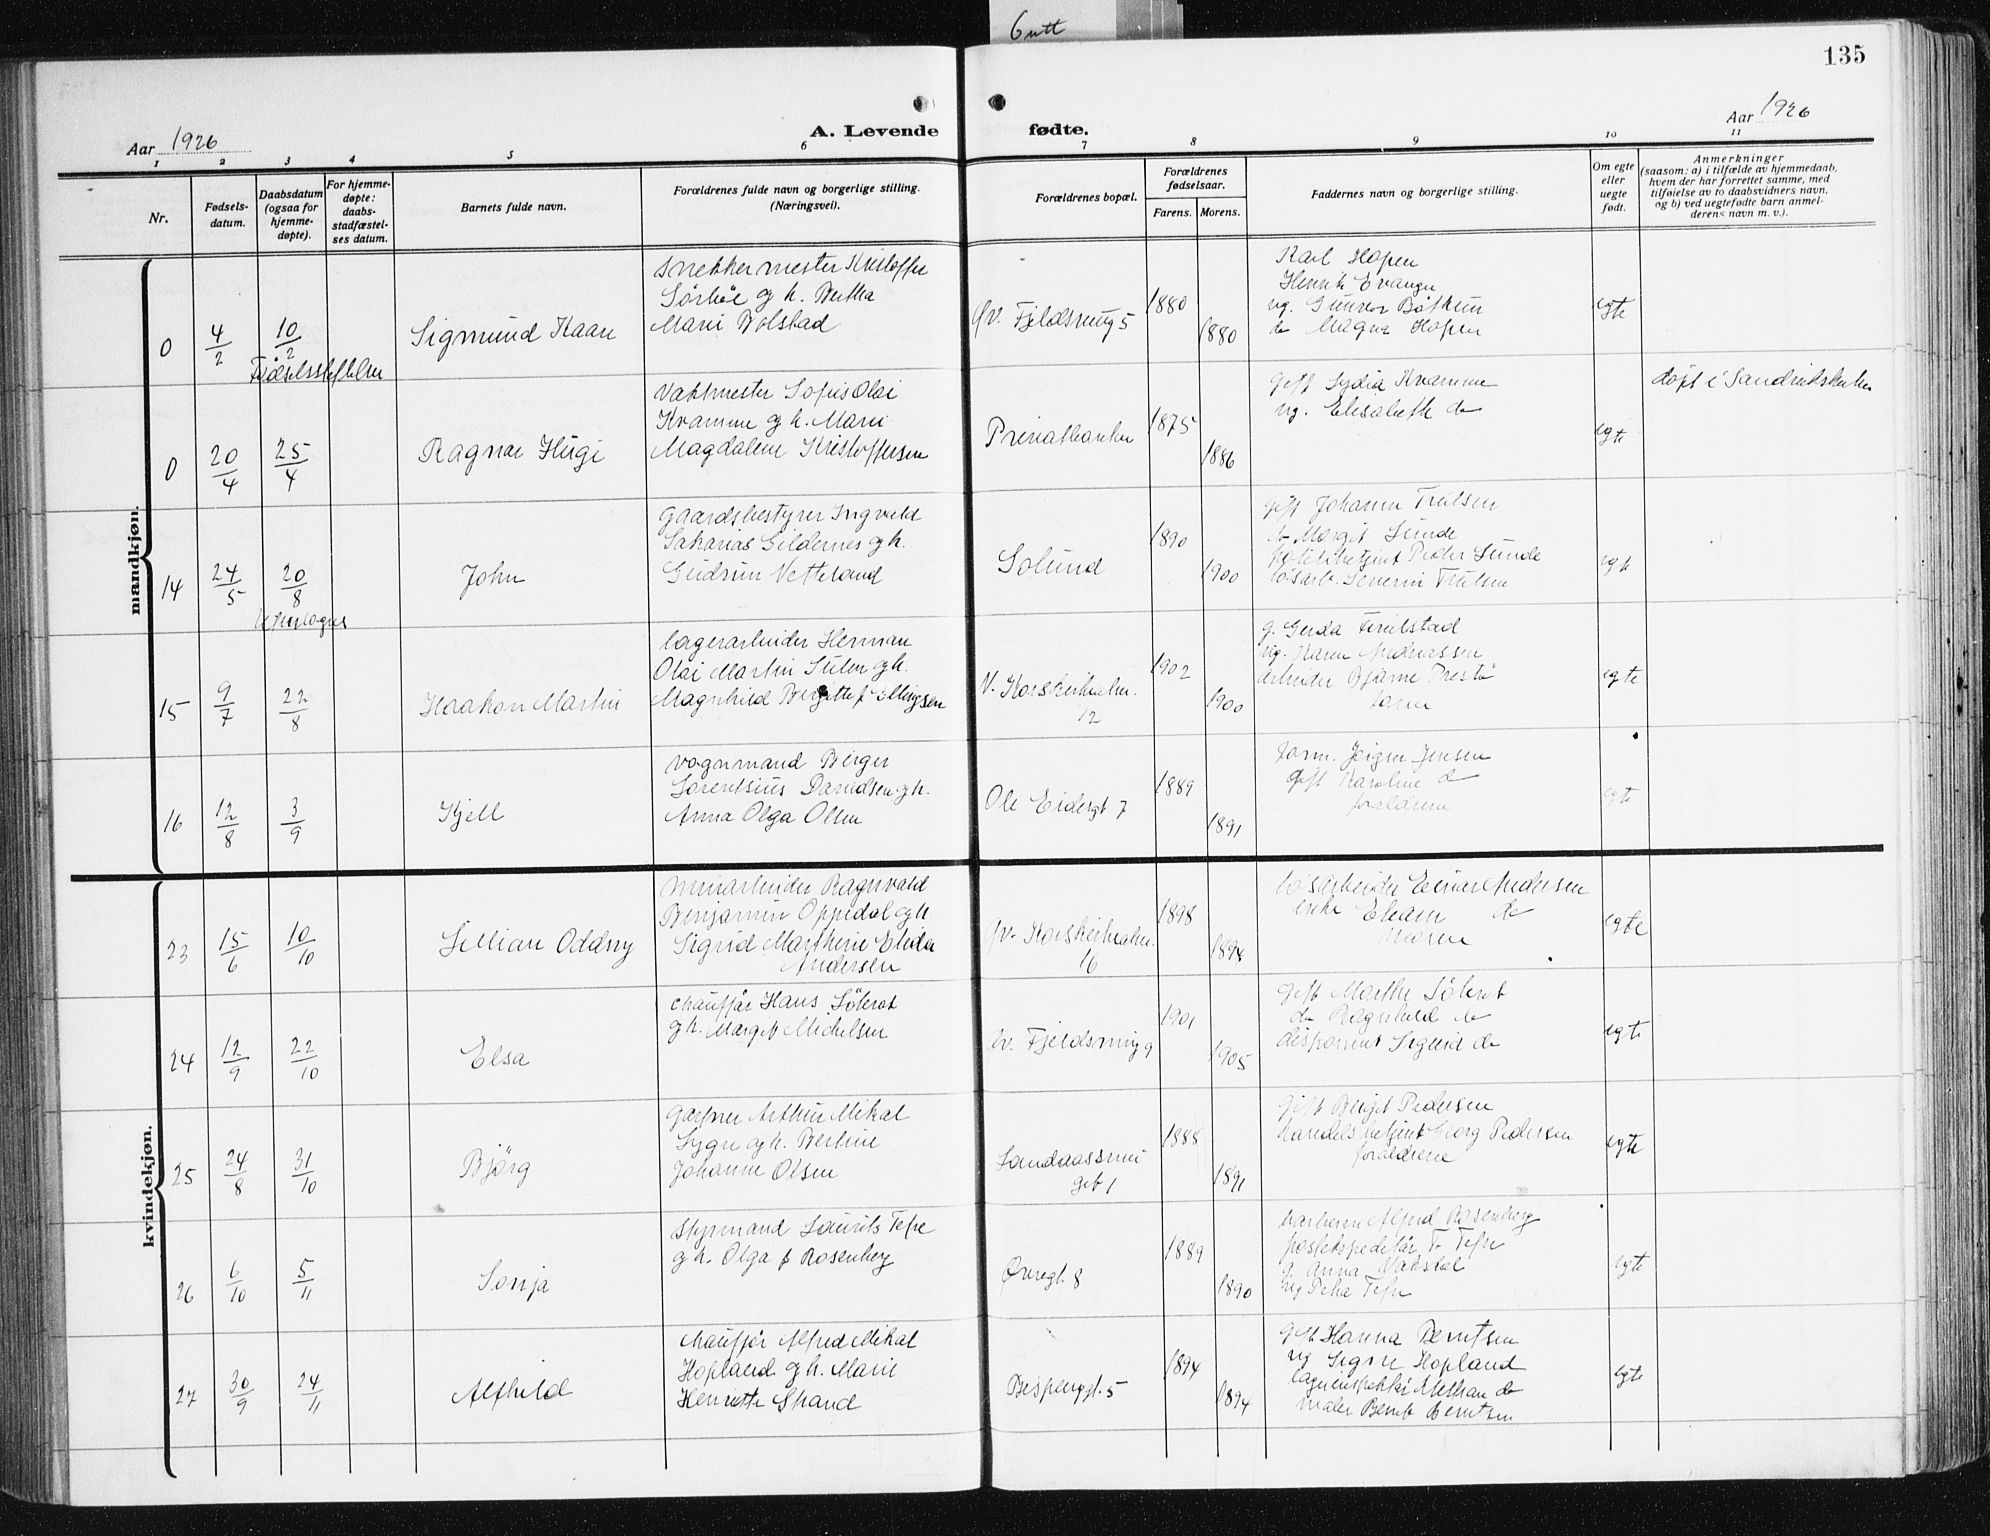 6 utt
135
Aar 1926
A. Levende fødte.
Aar 1926
1 2 3 4 5 6 7 8 9 10 11
Nr.
Fødsels-
datum.
Daabsdatum
(ogsaa for
hjemme-
døpte).
For hjemme-
døpte:
daabs-
stadfæstel-
ses datum.
Barnets fulde navn.
Forældrenes fulde navn og borgerlige stilling.
(Næringsvei).
Forældrenes bopæl.
Forældrenes
fødselsaar.
Farens. Morens.
Faddernes navn og borgerlige stilling.
Om egte
eller
uegte
født.
Anmerkninger
(saasom: a) i tilfælde av hjemmedaab,
hvem der har forrettet samme, med
tilføielse av to daabsvidners navn,
og b) ved uegtefødte barn anmel-
derens navn m. v.).
mandkjøn.
0
4/2
10/2
Fødselsstiftelsen
Sigmund Kaare
Snekkermester Kristoffer
Sørhøe og h. Bertha
Marie Volstad
Øv. Fjeldsmug 5
1880
1880
Karl Hopen
Henrik
ug. Gunvor
do Magna Hopen
egte
0
20/4
25/4
Ragnar Hugi
Vaktmester Sofus Olai
Kvamme og h. Marie
Magdalene Kristoffersen
1875
1886
Gift Lydia Kvamme
ug. Elisabeth do
egte
døpt i
14
24/5
20/8
John
Gaardsbestyrer Ingvald
Sakarias Gildernes og h.
Gudrun Vetteland
Solund
1890
1900
Gift Johanne Trulsen
do Margit Sunde
Politibetjent Peder Sunde
løsarb. Severin Trulsen
egte
15
9/7
22/8
Haakon Martin
lagerarbeider Herman
Olai Martin og h.
Magnhild Birgitte f. Ellingsen
V. Korskirkealm.
12
1902
1900
g. Gerda
ug. Karen Andreassen
Arbeider Bjarne
faren
egte
16
12/8
3/9
Kjell
vognmand Birger
Lorentsius Davidsen og h.
Anna Olga Olsen
Ole Eidesgt 7
1889
1891
form. Jørgen Jensen
Gift Karoline do
forældrene
egte
kvindekjøn.
23
15/6
10/10
Lillian Oddny
Minearbeider Ragnvald
Benjamin Oppedal og h
Sigrid Marthine Elida
Andersen
Øv. Korskirkealm.
16
1898
1894
løsarbeider Einar Andersen
enke Ellen do
Moren
egte
24
12/9
22/10
Elsa
chauffør Hans
og h. Margit Michelsen
Øv. Fjeldsmug 9
1901
1905
Gift Marthe
do Ragnhild do
disponent Sigurd do
egte
25
24/8
31/10
Bjørg
Gartner Arthur Mikal
Sygn og h. Bertine
Johanne Olsen
1888
1891
Gift Birgit Pedersen
handelsbetjent Georg Pedersen
forældrene
egte
26
6/10
5/11
Sonja
Styrmand Laurits Tefre
og h. Olga f Rosenberg
Øvregt. 8
1889
1890
barberer Alfred Rosenberg
postekspeditør T. Tefre
g. Anna
ug Petra Tefre
egte
27
30/9
24/11
Alfhild
chauffør Alfred Mikal
Hopland og h. Marie
Henriette Strand
Bispenggt. 5
1894
1894
Gift Hanna Berntsen
ug Signe Hopland
do
maler Bernt Berntsen
egte